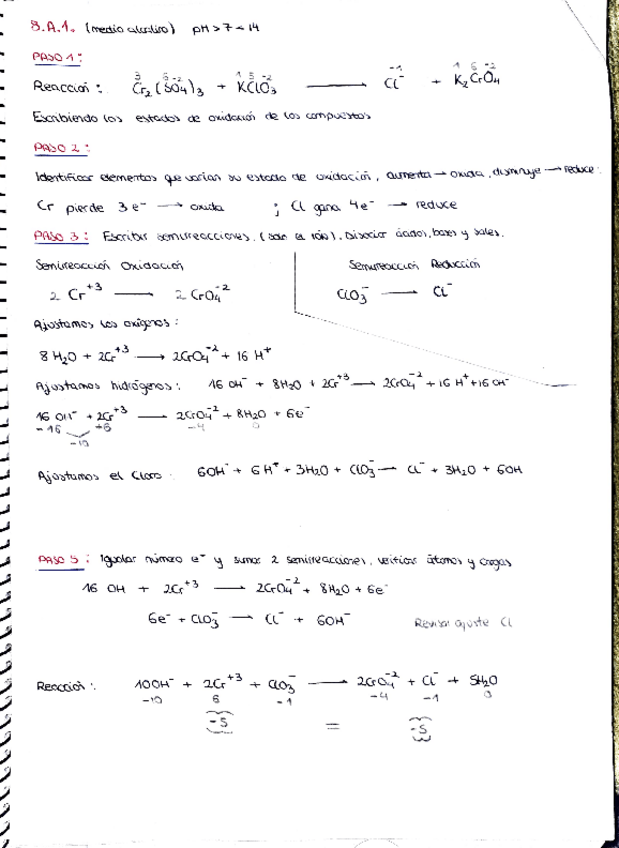 8.A.1. (medio alcalino) pH > 7 - 14
PASO 1:
3 6 -2 1 5 -2 -1 1 6 -2
Reacción: Cr₂(SO₄)₃ + KClO₃ ⟶ Cl⁻ + K₂CrO₄
Escribiendo los estados de oxidación de los compuestos
PASO 2:
Identificar elementos que varían su estado de oxidación, aumenta → oxida, disminuye → reduce.
Cr pierde 3e⁻ → oxida ; Cl gana 4e⁻ → reduce
PASO 3: Escribir semirreacciones. (solo el ión). Disociar ácidos, bases y sales.
Semirreacción Oxidación Semirreacción Reducción
2 Cr⁺³ ⟶ 2 CrO₄⁻² ClO₃⁻ ⟶ Cl⁻
Ajustamos los oxígenos:
8 H₂O + 2Cr⁺³ ⟶ 2CrO₄⁻² + 16 H⁺
Ajustamos hidrógenos: 16 OH⁻ + 8H₂O + 2Cr⁺³ ⟶ 2CrO₄⁻² + 16 H⁺ + 16 OH⁻
16 OH⁻ + 2Cr⁺³ ⟶ 2CrO₄⁻² + 8H₂O + 6e⁻
-16 +6 -4 0
-10
Ajustamos el Cloro: 6OH⁻ + 6H⁺ + 3H₂O + ClO₃⁻ ⟶ Cl⁻ + 3H₂O + 6OH
PASO 5: Igualar número e⁻ y sumar 2 semirreacciones, verificar átomos y cargas
16 OH + 2Cr⁺³ ⟶ 2CrO₄⁻² + 8H₂O + 6e⁻
6e⁻ + ClO₃⁻ ⟶ Cl⁻ + 6OH⁻ Revisar ajuste Cl
Reacción: 10OH⁻ + 2Cr⁺³ + ClO₃⁻ ⟶ 2CrO₄⁻² + Cl⁻ + 5H₂O
-10 6 -1 -4 -1 0
-5 = -5